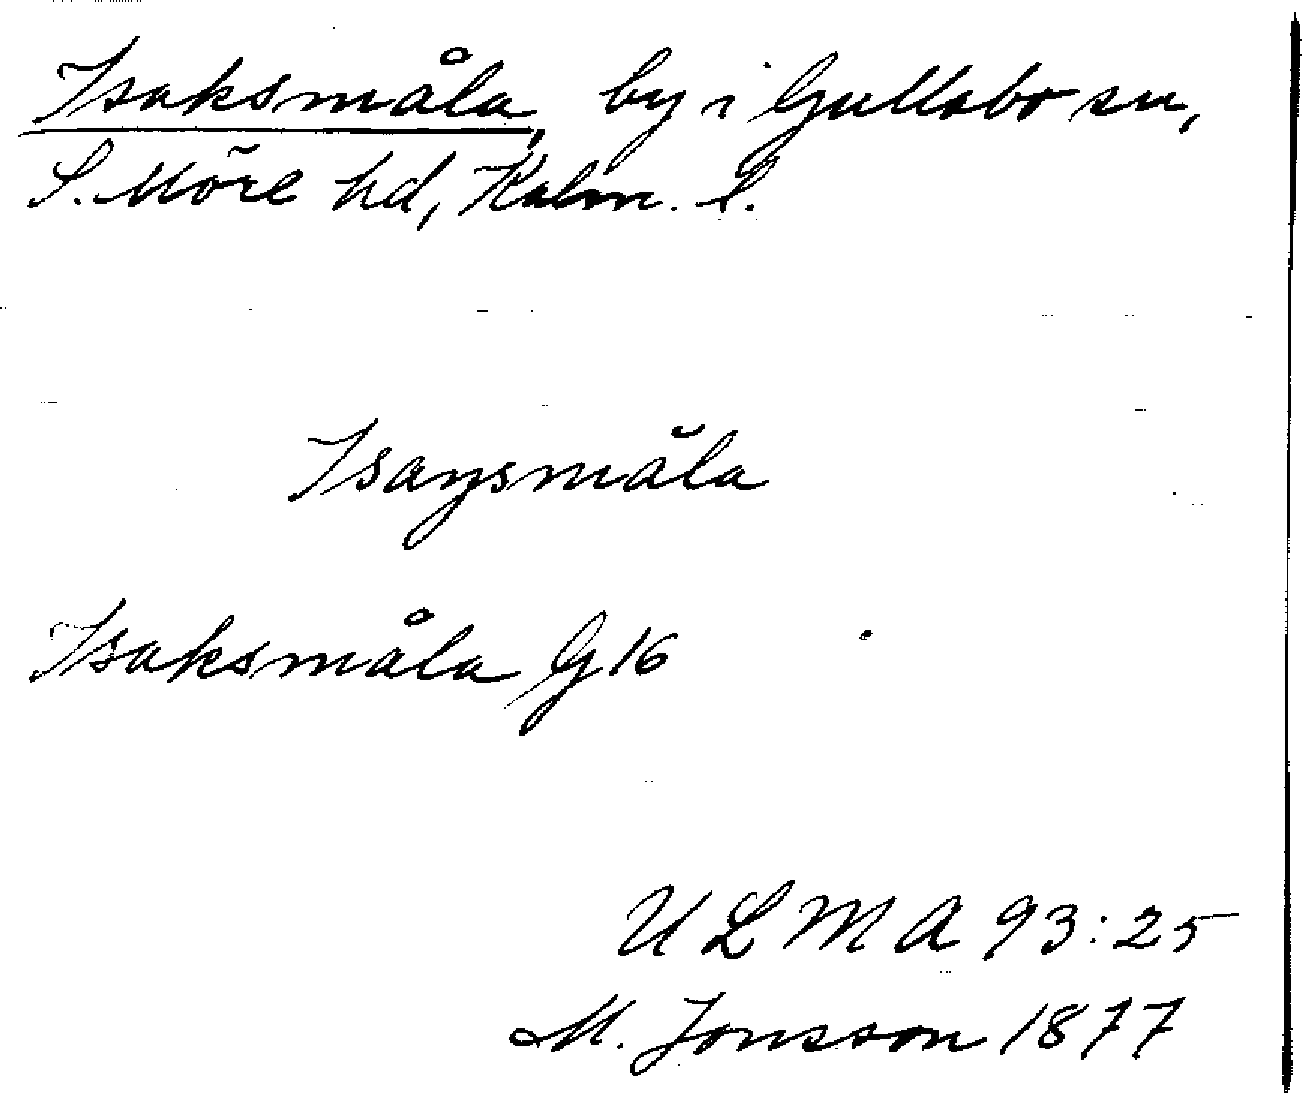 Isaksmåla, by i Gullabo sn,
S. Möre hd, Kalm. l.
Isaysmåla
Isaksmåla G 16
ULMA 93:25
M. Jonsson 1877